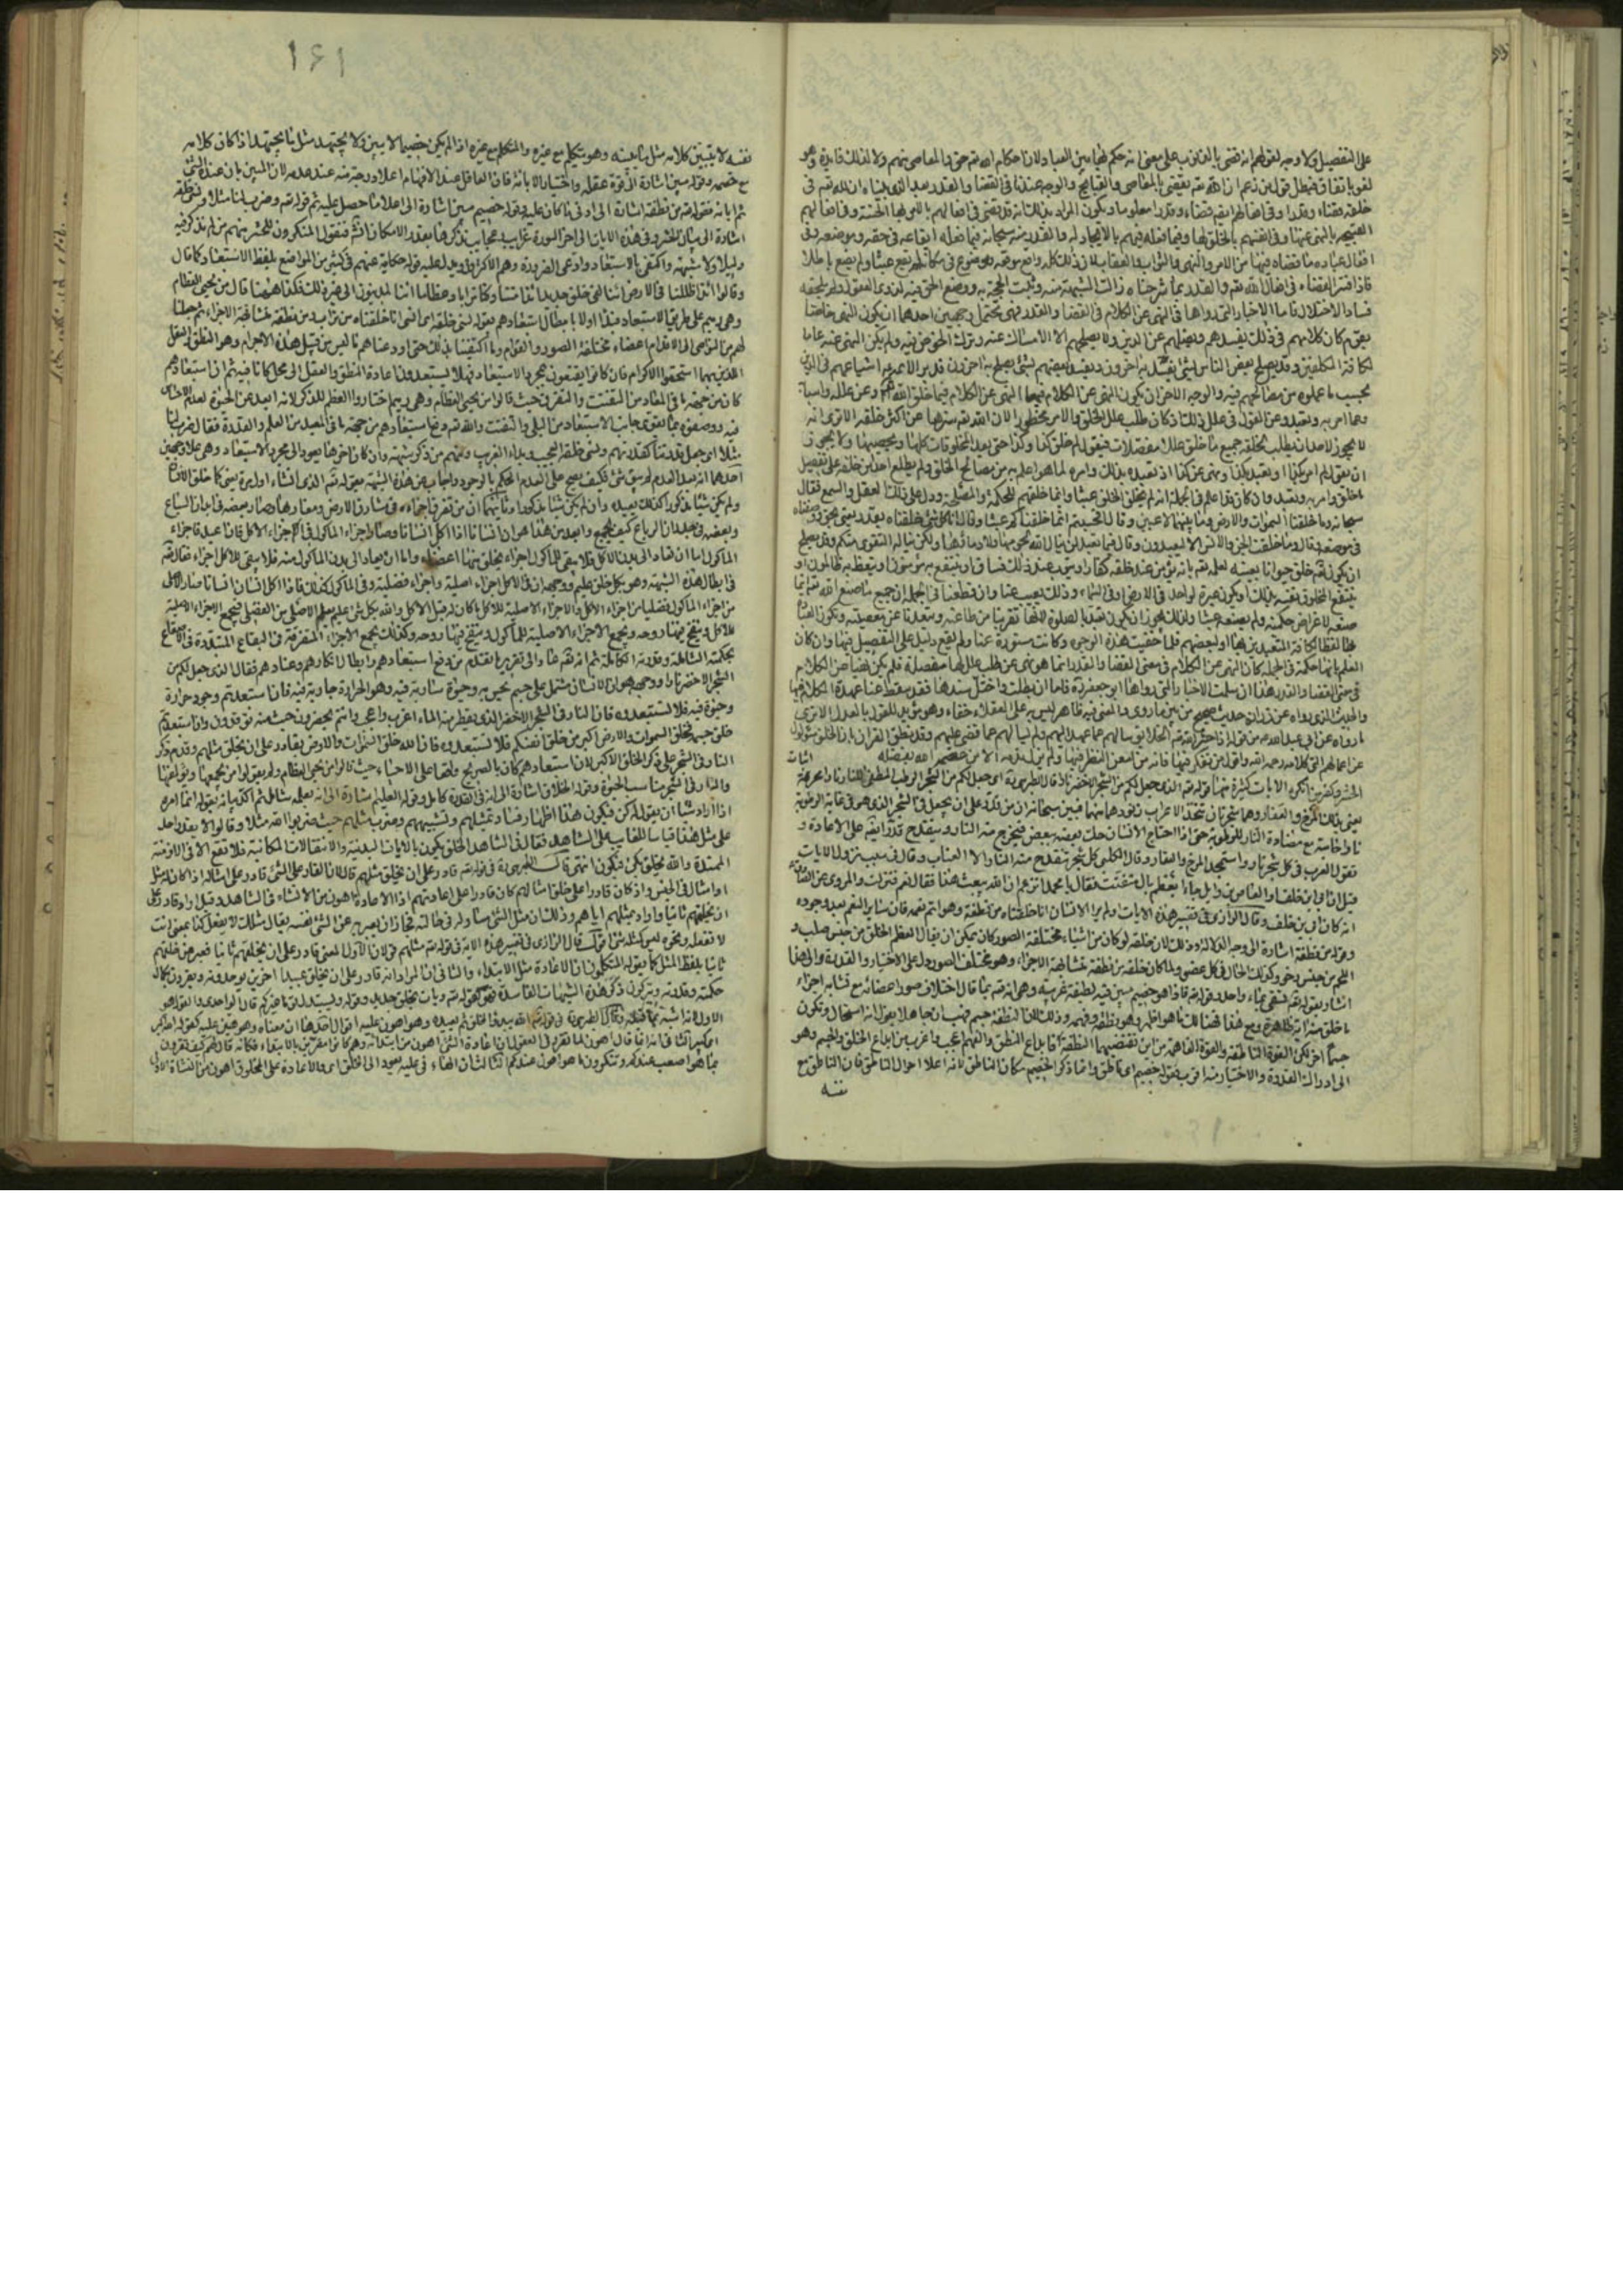 على التفصيل ولا وجه لقولهم انه قضى بالذنوب على معنى انه حكم بها بين العباد لان احكام الله تعالى حق والمعاصى منهم ولا لذلك فايدة وهو
لغو باتفاق فبطل قول من زعم ان الله تعالى يقضى بالمعاصى والقبايح والوجه عندنا فى القضاء والقدر بعد الذى بيناه ان لله تعالى فى
خلقه قضاء وقدرا وفى افعالهم ايضا قضاء وقدرا معلوما ويكون المراد بذلك انه قد قضى فى افعالهم الحسنة بالامر بها وفى افعالهم
القبيحه بالنهى عنها وفى انفسهم بالخلق لها وفيما فعله فيهم بالايجاد له والقدر منه سبحانه فيما فعله ايقاعه فى حقه وموضعه وفى
افعال عباده ما قضاه فيها من الامر والنهى والثواب والعقاب لان ذلك كله واقع موقعه وموضوع فى مكانه لم يقع عبثا ولم يصنع باطلا
فاذا فسر القضاء فى افعال الله تعالى والقدر بما شرحناه زالت الشبهة منه وثبتت الحجة به ووضح الحق فيه لذوى العقول ولم يلحقه
فساد ولا اختلال فاما الاخبار التى رواها فى النهى عن الكلام فى القضاء والقدر فهى تحتمل وجهين احدهما ان يكون النهى خاصا
بقوم كان كلامهم فى ذلك يفسدهم ويضلهم عن الدين ولا يصلحهم الا الامساك عنه وترك الخوض فيه ولم يكن النهى عنه عاما
لكافة المكلفين وقد يصلح بعض الناس بشئ يفسد به اخرون ويفسد بعضهم بشئ يصلح به اخرون فدبر الائمة ع اشياعهم فى الدين
بحسب ما علموه من مصالحهم فيه والوجه الاخر ان يكون النهى عن الكلام فيهما النهى عن الكلام فيما خلق الله تعالى وعن علله واسبابه
وعما امر به وتعبد وعن القول فى علل ذلك اذ كان طلب علل الخلق والامر محظورا لان الله تعالى سترها عن اكثر خلقه الا ترى انه
لا يجوز لاحد ان يطلب لخلقه جميع ما خلق عللا مفصلات فيقول لم خلق كذا وكذا حتى يعد المخلوقات كلها ويحصيها ولا يجوز
ان يقول لم امر بكذا او تعبد بكذا ونهى عن كذا اذ تعبده بذلك وامره لما هو اعلم به من مصالح الخلق ولم يطلع احدا من خلقه على تفصيل
ما خلق وامر به وتعبد وان كان قد اعلم فى الجملة انه لم يخلق الخلق عبثا وانما خلقهم للحكمة والمصلحة ودل على ذلك بالعقل والسمع فقال
سبحانه وما خلقنا السموات والارض وما بينهما لاعبين وقال افحسبتم انما خلقناكم عبثا وقال انا كل شئ خلقناه بقدر يعنى بحق ووضعناه
فى موضعه وقال وما خلقت الجن والانس الا ليعبدون وقال فيما تعبد لن ينال الله لحومها ولا دماؤها ولكن يناله التقوى منكم وقد يصلح
ان يكون تعالى خلق حيوانا بعينه لعلمه تعالى بانه يؤمن عند خلقه كفار او يتوب عند ذلك فساق او ينتفع به مؤمنون او يتعظ به ظالمون او
ينتفع المخلوق نفسه بذلك او يكون عبرة لواحد فى الارض او فى السماء وذلك يغيب عنا وان قطعنا فى الجملة ان جميع ما صنع الله تعالى انما
صنعه لاغراض حكمته ولم يصنعه عبثا وكذلك يجوز ان يكون تعبدنا بالصلوة لانها تقربنا من طاعته وتبعدنا عن معصيته وتكون العبادة
بها لطفا لكافة المتعبدين بها او لبعضهم فلما خفيت هذه الوجوه وكانت مستورة عنا ولم يقع دليل على التفصيل فيها وان كان
العلم بانها حكمة فى الجملة كان النهى عن الكلام فى معنى القضاء والقدر انما هو نهى عن طلب علل لها مفصلة فلم يكن نهيا عن الكلام
فى معنى القضاء والقدر هذا ان سلمت الاخبار التى رواها ابو جعفر ره فاما ان بطلت واختل سندها فقد سقط عنا عهدة الكلام فيها
والحديث الذى رواه عن زرارة حديث صحيح من بين ما روى والمعنى فيه ظاهر ليس به على العقلاء خفاء وهو مؤيد للقول بالعدل الا ترى
ما رواه عن ابى عبد الله ع من قوله اذا حشر الله تعالى الخلايق سالهم عما عهد اليهم ولم يسالهم عما قضى عليهم وقد نطق القران بان الخلق مسؤلون
عن اعمالهم انتهى كلامه رحمه الله واقول من تفكر فيها فانه من امعن النظر فيها ولم يزل قدمه الا من عصمه الله بفضله اثبات
الحشر وكفر من انكره الايات كثيرة منها قوله تعالى الذى جعل لكم من الشجر الاخضر نارا قال الطبرسى ره اى جعل لكم من الشجر الرطب المطفئ للنار نارا محرقة
يعنى بذلك المرخ والعفار وهما شجرتان تتخذ الاعراب زنودها منهما فبين سبحانه ان من قدر على ان يجعل فى الشجر الذى هو فى غاية الرطوبة
نارا حامية مع مضادة النار للرطوبة حتى اذا احتاج الانسان حك بعضه ببعض فتخرج منه النار وينقدح قدر ايضا على الاعادة و
تقول العرب فى كل شجر نار واستمجد المرخ والعفار وقال الكلبى كل شجر تنقدح منه النار الا العناب وقال فى سبب نزول الايات
قيل ان ابى بن خلف او العاص بن وايل جاء بعظم بال متفتت فقال يا محمد اتزعم ان الله يبعث هذا فقال نعم فنزلت والمروى عن الصادق ع
انه كان ابى بن خلف وقال الرازى فى تفسير هذه الايات اولم ير الانسان انا خلقناه من نطفة وهو اتم نعمه فان ساير النعم بعد وجوده
وقوله من نطفة اشارة الى وجه الدلالة وذلك لان خلقه لو كان من اشياء مختلفة الصور كان يمكن ان يقال العظم الخلق من جنس صلب و
اللحم من جنس رخو وكذلك الحال فى كل عضو ولما كان خلقه من نطفة متشابهة الاجزاء وهو مختلف الصور دل على الاختيار والقدرة والى هذا
اشار بقوله تعالى يسقى بماء واحد وقوله فاذا هو خصيم مبين فيه لطيفة غريبة وهى انه تعالى بما قال اختلاف صور اعضائه مع تشابه اجزاء
ما خلق منه اية ظاهرة ومع هذا فهنالك ما هو اظهر وهو نطقه وفهمه وذلك لان النطفة جسم فهب ان جاهلا يقول انه استحال وتكون
جسما اخر لكن القوة الناطقة والقوة الفاهمة من اين تقتضيهما النطفة فابداع النطق والفهم اعجب واغرب من ابداع الخلق والجسم وهو
الى ادراك القدرة والاختيار منه اقرب فقوله خصيم اى ناطق وانما ذكر الخصيم مكان الناطق لانه اعلا احوال الناطق فان الناطق مع
نفسه
١٤١
نفسه لا يتبين كلامه مثل ما يبينه وهو يتكلم مع غيره والمتكلم مع غيره اذا لم يكن خصيما لا يبين ولا يجتهد مثل ما يجتهد اذا كان كلامه
مع خصمه وقوله مبين اشارة الى قوة عقله واختيار الابانة فان العاقل عند الافهام اعلا درجة منه عند عدمه لان المبين بان عنده الشئ
ثم ابانه فقوله تعالى من نطفة اشارة الى ادنى ما كان عليه وقوله خصيم مبين اشارة الى اعلا ما حصل عليه ثم قوله تعالى وضرب لنا مثلا ونسى خلقه
اشارة الى بيان الحشر وفى هذه الايات الى اخر السورة غرايب وعجايب نذكرها بقدر الامكان انشاء الله فنقول المنكرون للحشر منهم من لم يذكر فيه
دليلا ولا شبهة واكتفى بالاستبعاد وادعى الضرورة وهم الاكثرون ويدل عليه قوله حكاية عنهم فى كثير من المواضع بلفظ الاستبعاد كما قال
وقالوا ائذا ضللنا فى الارض ائنا لفى خلق جديد ائذا متنا وكنا ترابا وعظاما ائنا لمدينون الى غير ذلك فكذا ههنا قال من يحيى العظام
وهى رميم على طريق الاستبعاد فبدا اولا بابطال استبعادهم بقوله نسى خلقه اى انسى انا خلقناه من تراب ومن نطفة متشابهة الاجزاء ثم جعلنا
لهم من النواصى الى الاقدام اعضاء مختلفة الصور والقوام وما اكتفينا بذلك حتى اودعناهم ما ليس من قبيل هذه الاجرام وهو النطق والعقل
اللذين بهما استحقوا الاكرام فان كانوا يقنعون بمجرد الاستبعاد فهلا يستبعدون اعادة النطق والعقل الى محل كانا فيه ثم ان استبعادهم
كان من جهة ما فى المعاد من التفتت والتفرق حيث قالوا من يحيى العظام وهى رميم اختاروا العظم للذكر لانه ابعد عن الحيوة لعدم الاحساس
فيه ووصفوه بما يقوى جانب الاستبعاد من البلى والتفتت والله تعالى دفع استبعادهم من جهة ما فى المعيد من العلم والقدرة فقال ضرب لنا
مثلا اى جعل قدرتنا كقدرتهم ونسى خلقه العجيب وبداه الغريب ومنهم من ذكر شبهة وان كان اخرها يعود الى مجرد الاستبعاد وهى على وجهين
احدهما انه بعد العدم لم يبق شئ فكيف يصح على العدم الحكم بالوجود واجاب عن هذه الشبهة بقوله تعالى الذى انشاها اول مرة يعنى كما خلق الانسان
ولم يكن شيئا مذكورا كذلك يعيده وان لم يكن شيئا مذكورا وثانيهما ان من تفرق اجزاءه فى مشارق الارض ومغاربها وصار بعضه فى ابدان السباع
وبعضه فى جدران الرباع كيف يجمع وابعد من هذا هو ان انسانا اذا اكل انسانا وصار اجزاء الماكول فى اجزاء الاكل فان اعيد فاجزاء
الماكول اما ان تعاد الى بدن الاكل فلا يبقى للماكول اجزاء يخلق منها اعضاؤه واما ان يعاد الى بدن الماكول منه فلا يبقى للاكل اجزاء فقال تعالى
فى ابطال هذه الشبهة وهو بكل خلق عليم ووجهه ان فى الاكل اجزاء اصلية واجزاء فضلية وفى الماكول كذلك فاذا اكل انسان انسانا صار الاصلى
من اجزاء الماكول فضليا من اجزاء الاكل والاجزاء الاصلية للاكل ما كان له قبل الاكل والله بكل شئ عليم يعلم الاصلى من الفضلى فيجمع الاجزاء الاصلية
للاكل وينفخ فيها روحه ويجمع الاجزاء الاصلية للماكول وينفخ فيها روحه وكذلك يجمع الاجزاء المتفرقة فى البقاع المتبددة فى الاصقاع
بحكمته الشاملة وقدرته الكاملة ثم انه تعالى عاد الى تقرير ما تقدم من دفع استبعادهم وابطال انكارهم وعنادهم فقال الذى جعل لكم من
الشجر الاخضر نارا ووجهه هو ان الانسان مشتمل على جسم يحس به وحيوة سارية فيه وهو كحرارة جارية فيه فان استبعدتم وجود حرارة
وحيوة فيه فلا تستبعدوه فان النار فى الشجر الاخضر الذى يقطر منه الماء اغرب واعجب وانتم تحضرون حيث منه توقدون وان استبعدتم
خلق جسمه فخلق السموات والارض اكبر من خلق انفسكم فلا تستبعدوه فان الله خلق السموات والارض بقادر على ان يخلق مثلهم وقدم ذكر
النار فى الشجر على ذكر الخلق الاكبر لان استبعادهم كان بالصريح واقعا على الاحياء حيث قالوا من يحيى العظام ولم يقولوا من يجمعها ويؤلفها
والنار فى الشجر مناسب الحيوة وقوله الخلاق اشارة الى انه فى القدرة كامل وقوله العليم اشارة الى انه بعلمه شامل ثم اكد بيانه بقوله انما امره
اذا اراد شيئا ان يقول له كن فيكون هذا اظهار فساد تمثيلهم وتشبيههم وضرب مثلهم حيث ضربوا لله مثلا وقالوا لا يقدر احد
على مثل هذا قياسا للغايب على الشاهد فقال فى الشاهد الخلق يكون بالالات البدنية والانتقالات المكانية فلا تقع الا فى الازمنة
الممتدة والله يخلق بكن فيكون انتهى قال الطبرسى ره فى قوله تعالى قادر على ان يخلق مثلهم قال لان القادر على الشئ قادر على امثاله اذا كان له مثل
او امثال فى الجنس واذا كان قادرا على خلق امثالهم كان قادرا على اعادتهم اذ الاعادة اهون من الانشاء فى الشاهد وقيل اراد قادر على
ان يخلقهم ثانيا واراد بمثلهم اياهم وذلك ان مثل الشئ مساو له فى حالته فجاز ان يعبر به عن الشئ نفسه يقال مثلك لا يفعل كذا بمعنى انت
لا تفعله ونحوه ليس كمثله شئ وقال الرازى فى تفسير هذه الاية فى قوله تعالى مثلهم قولان الاول المعنى قادر على ان يخلقهم ثانيا فعبر عن خلقهم
ثانيا بلفظ المثل كما يقوله المتكلمون ان الاعادة مثل الابتداء والثانى ان المراد انه قادر على ان يخلق عبيدا اخرين يوحدونه ويقرون بكمال
حكمته وقدرته ويتركون ذكر هذه الشبهات الفاسدة فهو كقوله تعالى ويات بخلق جديد وقوله ويستبدل قوما غيركم قال الواحدى القول هو
الاول لانه اشبه بما قبله وقال الطبرسى ره فى قوله تعالى الله يبدؤا الخلق ثم يعيده وهو اهون عليه اقوال احدها ان معناه وهو هين عليه كقوله الله اكبر
اى كبير الثانى انه انما قال اهون لما تقرر فى العقول ان اعادة الشئ اهون من ابتدائه وهم كانوا مقرين بالابتداء فكانه قال لهم كيف تقرون
بما هو اصعب عندكم وتنكرون ما هو اهون عندكم الثالث ان الهاء فى عليه يعود الى الخلق اى والاعادة على المخلوق اهون من النشاة الاولى